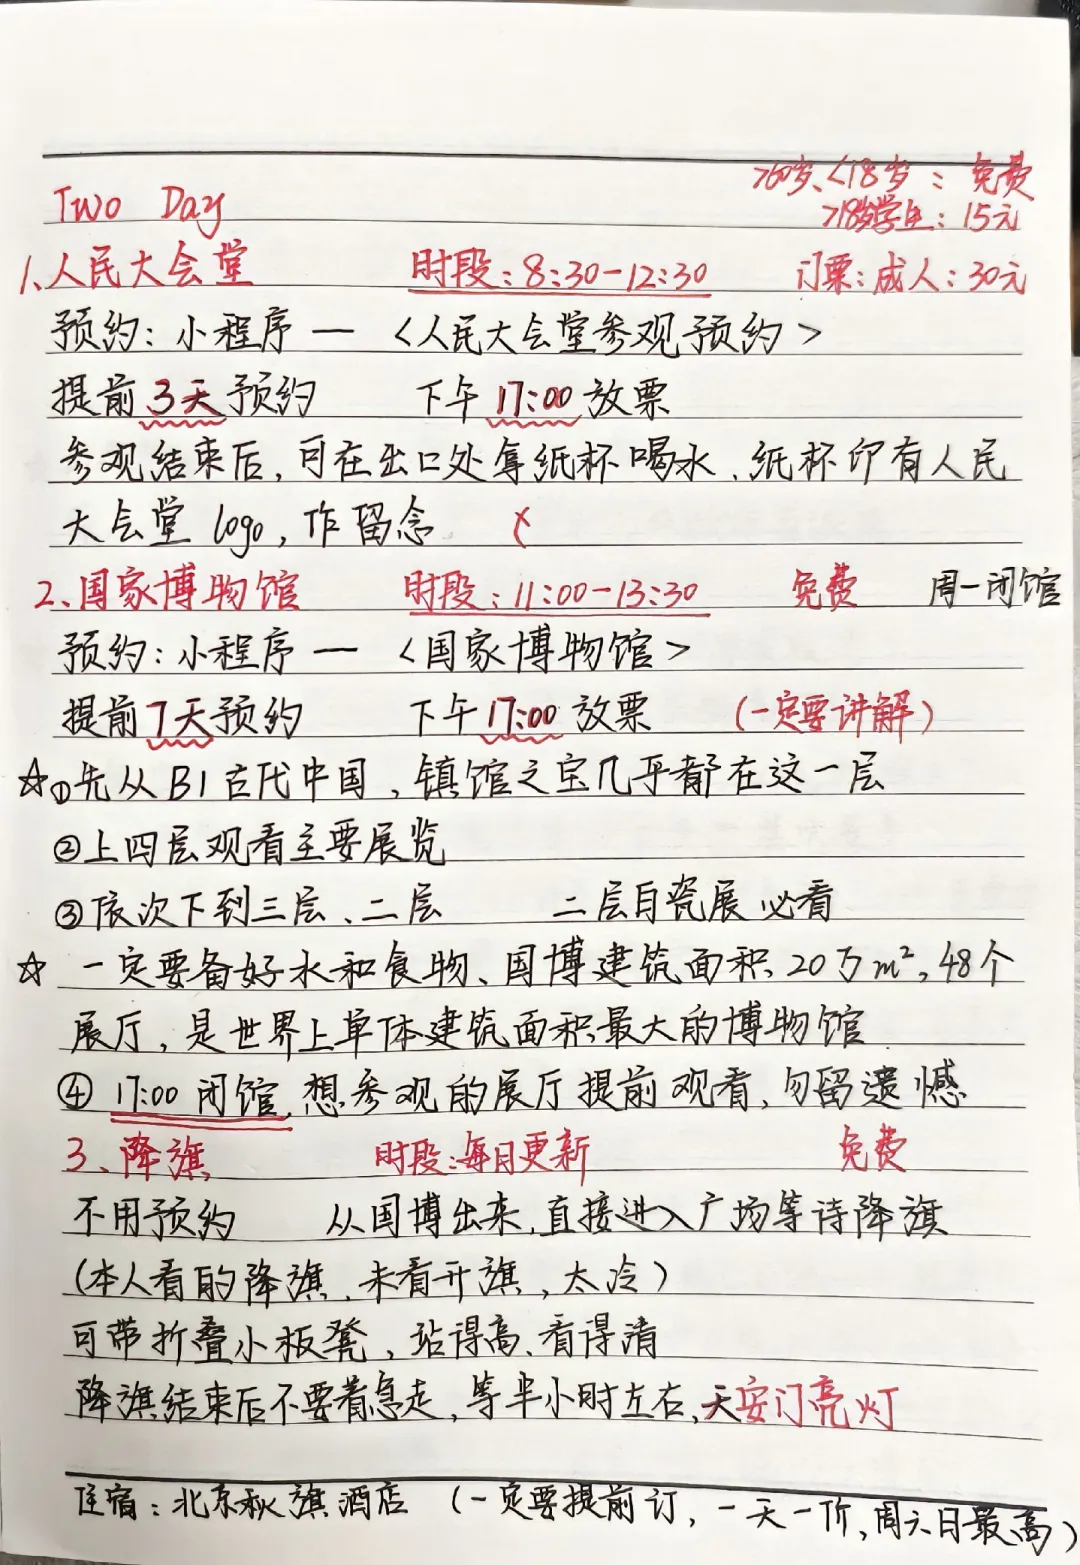 >60岁、<18岁：免费
Two Day
>18岁学生：15元
1、人民大会堂 时段：8:30-12:30 门票：成人：30元
预约：小程序 — <人民大会堂参观预约>
提前3天预约 下午17:00放票
参观结束后，可在出口处拿纸杯喝水，纸杯印有人民
大会堂logo，作留念
2、国家博物馆 时段：11:00-13:30 免费 周一闭馆
预约：小程序 — <国家博物馆>
提前7天预约 下午17:00放票 (一定要讲解)
☆①先从B1古代中国，镇馆之宝几乎都在这一层
②上四层观看主要展览
③依次下到三层、二层 二层自瓷展必看
☆ 一定要备好水和食物、国博建筑面积20万m²，48个
展厅，是世界上单体建筑面积最大的博物馆
④17:00闭馆，想参观的展厅提前观看，勿留遗憾
3、降旗 时段：每日更新 免费
不用预约 从国博出来，直接进入广场等待降旗
(本人看的降旗，未看升旗，太冷)
可带折叠小板凳，站得高、看得清
降旗结束后不要着急走，等半小时左右，天安门亮灯
住宿：北京秋旗酒店 (一定要提前订，一天一价，周六日最高)